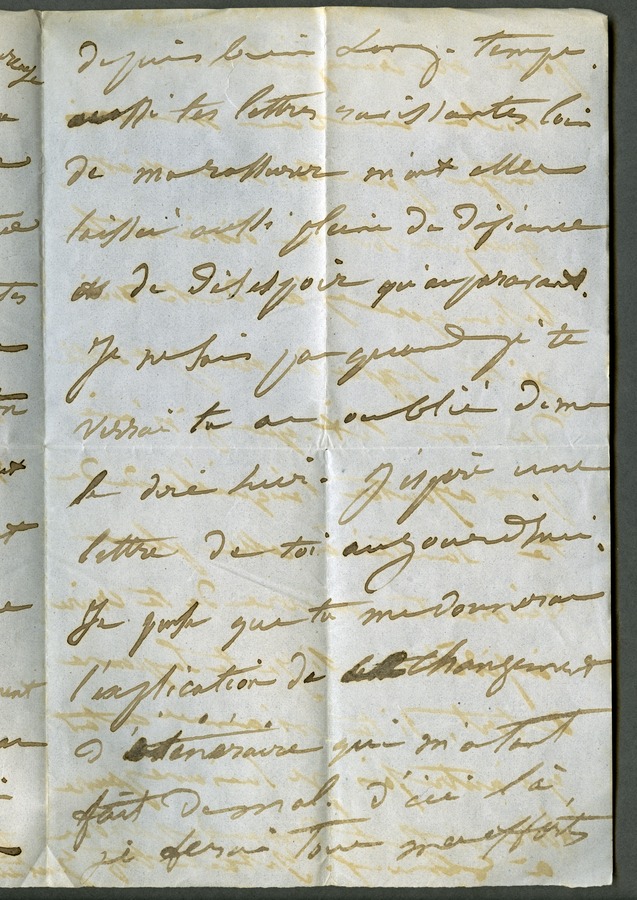 depuis bien Long-temps.
aussi tes lettres ravissantes loin
de me rassurer m'ont elles
laissé aussi plein de défiance
et de désespoir qu'auparavant.
Je ne sais pas quand je te
verrai tu as oublié de me
le dire hier. J'espère une
lettre de toi aujourd'hui.
Je pense que tu me donneras
l'explication de changement
d'itinéraire qui m'a tant
fait de mal. d'ici là,
je ferai tous mes efforts